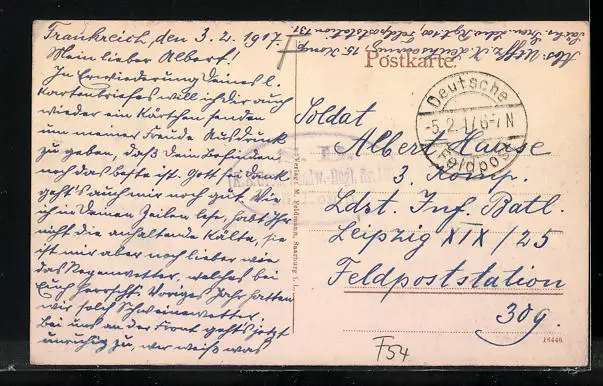 Frankreich, den 3.2.1917.
Mein lieber Albert!
In Erwiederung Deines l.
Kartenbriefes will ich dir auch
wieder ein Kärtchen senden
um meiner Freude Ausdruck
zu geben, daß Dein Befinden
noch das beste ist. Gott sei Dank
geht's auch mir noch gut. Wie
ich in Deinen Zeilen lese, habt Ihr
nicht die anhaltende Kälte, sie
ist mir aber noch lieber wie
das Regenwetter, welches bei
Euch herrscht. Voriges Jahr hatten
wir solch Schweinewetter.
Bei uns an der Front geht's jetzt
unruhig zu, wer weiß was
F
Abs: Uffz. 15. Komp.
Feldpoststation 131
Postkarte
Deutsche
-5.2.17.6-7N
Feldpost
Soldat
Albert Hause
3. Komp.
Ldst. Inf. Batl
Leipzig XIX/25
Feldpoststation
309.
Verlag M. Feldmann, Saarburg i. L.
16446
F54